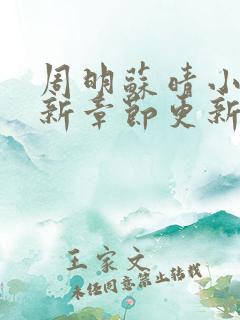 周明蘇晴小
新章節更新
王家文
未经同意禁止转载